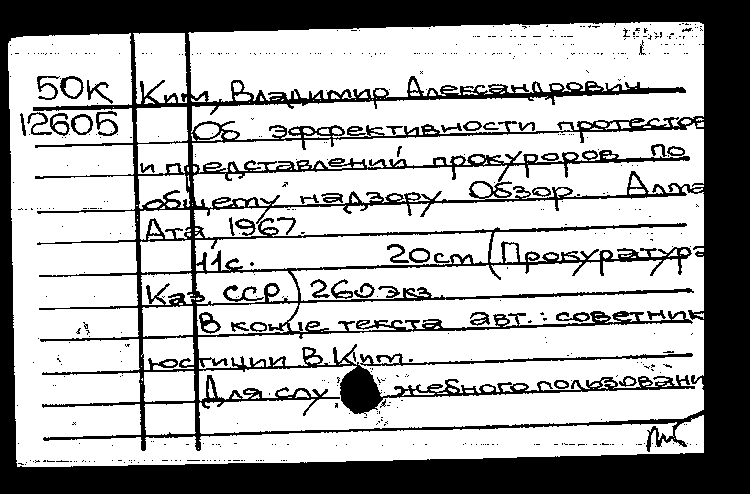 50К Ким, Владимир Александрович
12605 Об эффективности протестов
и представлений прокуроров по
общему надзору. Обзор. Алма
Ата, 1967.
11с. 20см. (Прокуратура
Каз. ССР.) 260 экз.
В конце текста авт.: советник
юстиции В. Ким.
Для служебного пользовани